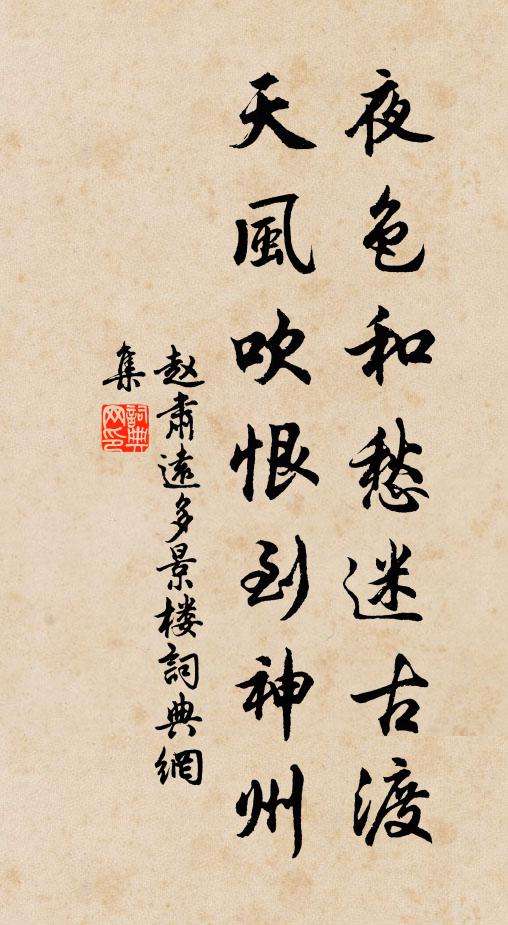 夜色和愁迷古渡
天風吹恨到神州
赵肃遠多景楼詞典網
集
詞典
网印